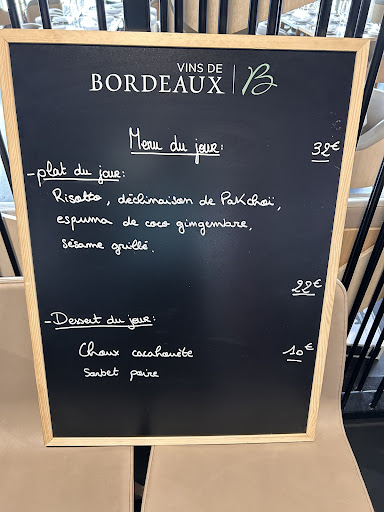 VINS DE
BORDEAUX
B
Menu du jour: 32€
- plat du jour:
Risotto, déclinaison de Pakchoi,
espuma de coco gingembre,
sésame grillé.
22€
- Dessert du jour:
Choux cacahouète 10€
Sorbet poire